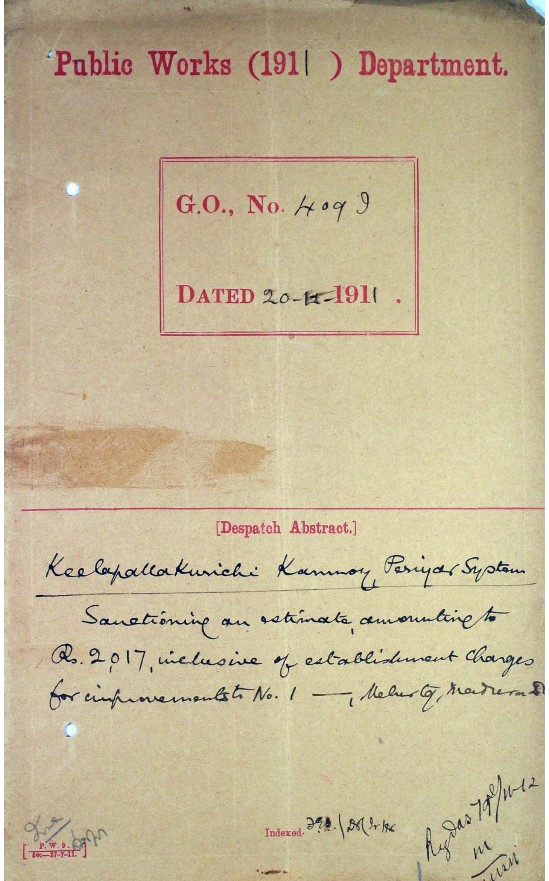 Public Works (1911) Department.
G.O., No. 409 I
DATED 20-12-1911.
[Despatch Abstract.]
Keelapallakurichi Kanmoy, Periyar System
Sanctioning an estimate, amounting to
Rs. 2,017, inclusive of establishment charges
for improvements to No. 1 —, Melur tq, Madura D
Indexed.
[P. W. 9.
Dec—27-7-11.]